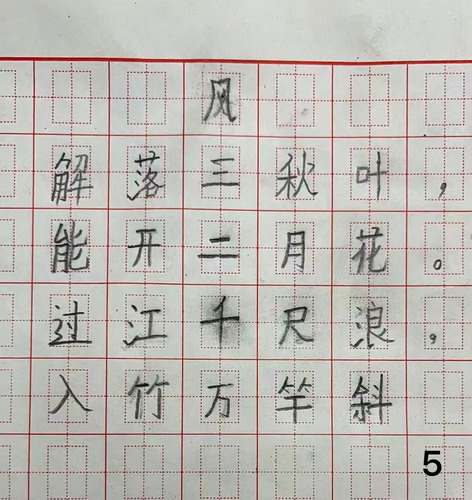 风
解落三秋叶，
能开二月花。
过江千尺浪，
入竹万竿斜
5